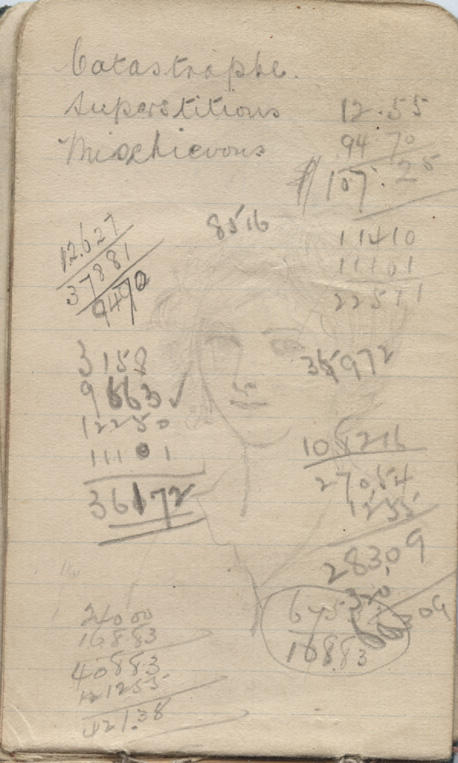 Catastrophe.
Superstitious
Mischievous
12.55
94 70
107.25
8516
12.627
37881
9470
11410
11101
22511
3158
9663 ✓
12250
11101
36172
35972
108216
27054
1255
28309
24000
16883
40883
10883